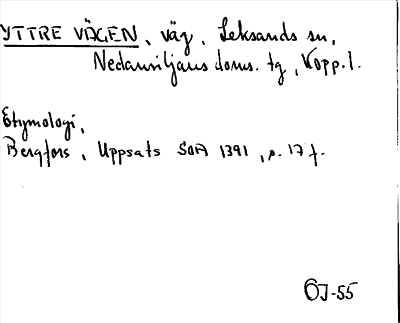 YTTRE VÄGEN, väg, Leksands sn,
Nedansiljans doms. tg, Kopp. l.
Etymologi,
Bergfors, Uppsats SOA 1391, s. 17 f.
GJ-55